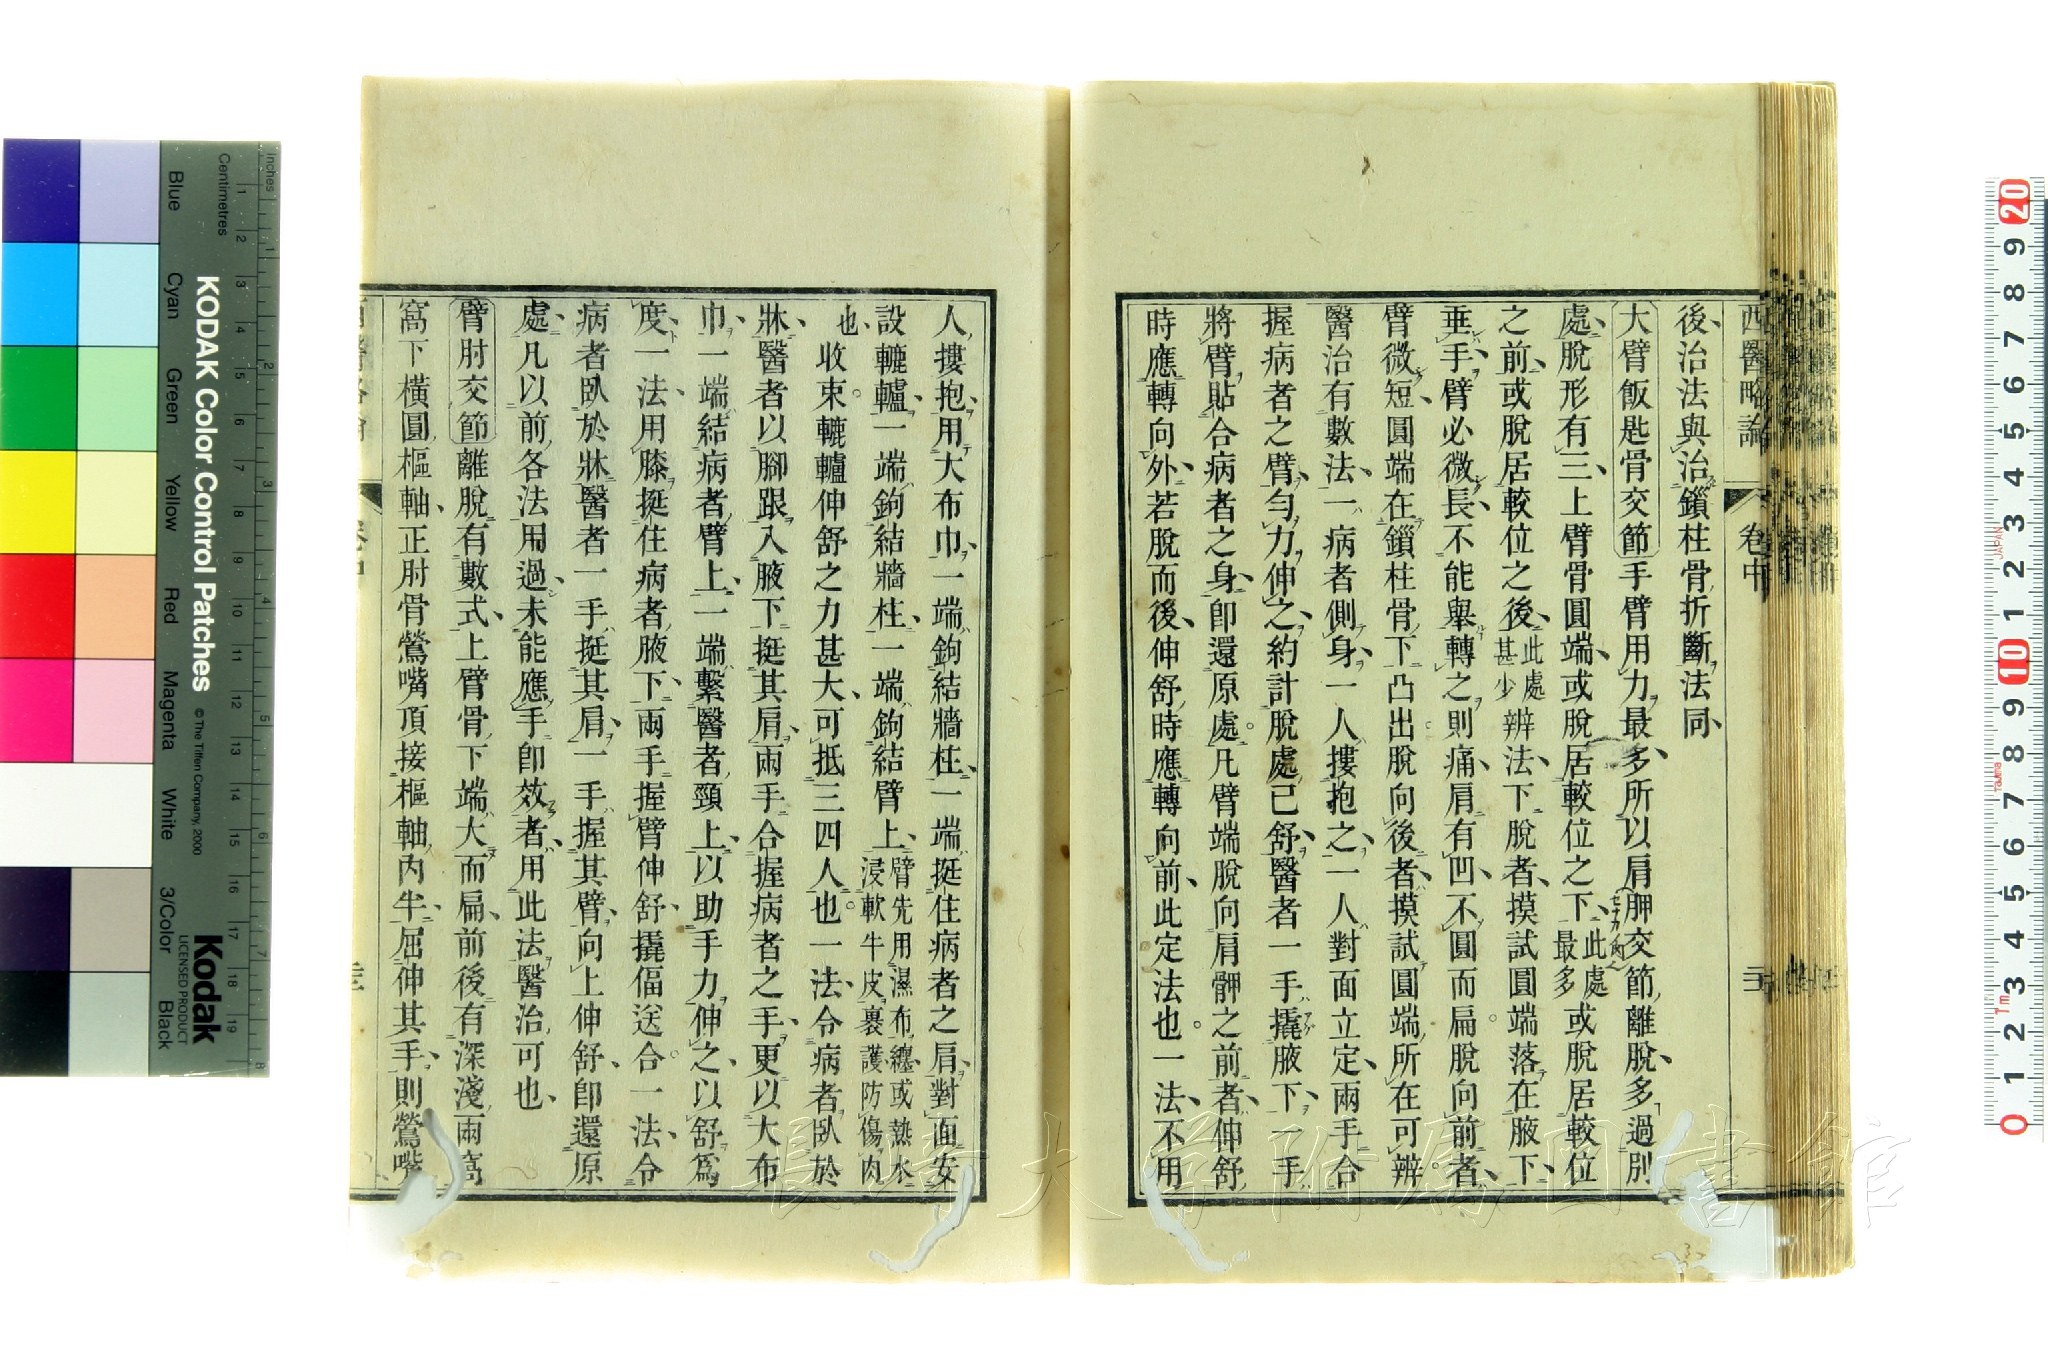 西醫略論
卷中
後治法與治鎻柱骨折斷法同
大臂飯匙骨交節手臂用力最多所以肩胛交節離脫多過別
處脫形有三上臂骨圓端或脫居較位之下此處最多或脫居較位
之前或脫居較位之後此處甚少辨法下脫者摸試圓端落在腋下
垂手臂必微長不能舉轉之則痛肩有凹不圓而扁脫向前者
臂微短圓端在鎻柱骨下凸出脫向後者摸試圓端所在可辨
醫治有數法一病者側身一人摟抱之一人對面立定兩手合
握病者之臂勻力伸之約計脫處已舒醫者一手撬腋下一手
將臂貼合病者之身卽還原處。凡臂端脫向肩胛之前者伸舒
時應轉向外若脫而後伸舒時應轉向前此定法也。一法不用
人摟抱用大布巾一端鉤結牆柱一端挺住病者之肩對面安
設轆轤一端鉤結牆柱一端鉤結臂上臂先用濕布纏或熱水浸軟牛皮裹護防傷肉
也收束。轆轤伸舒之力甚大可抵三四人也。一法令病者臥於
牀醫者以腳跟入腋下挺其肩兩手合握病者之手更以大布
巾一端結病者臂上一端繫醫者頸上以助手力伸之以舒爲
度一法用膝挺住病者腋下兩手握臂伸舒撬偪送合。一法令
病者臥於牀醫者一手挺其肩一手握其臂向上伸舒卽還原
處凡以前各法用過未能應手卽效者用此法醫治可也
臂肘交節離脫有數式上臂骨下端大而扁前後有深淺兩窩
窩下橫圓樞軸正肘骨鶯嘴頂接樞軸內牛屈伸其手則鶯嘴
Centimetres
inches
KODAK Color Control Patches
© The Tiffen Company, 2000
Kodak
LICENSED PRODUCT
Blue
Cyan
Green
Yellow
Red
Magenta
White
3/Color
Black
長崎大学附属図書館